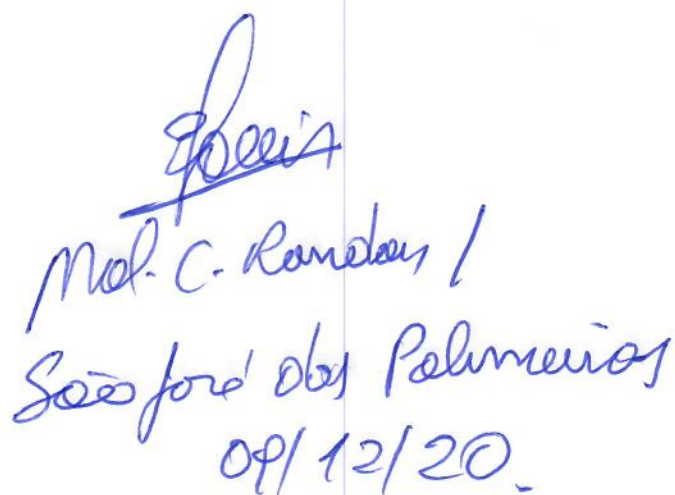 Mal. C. Rondon /
São José das Palmeiras
09/12/20.